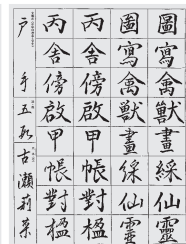 圖寫禽獸畫綵仙靈
圖寫禽獸畫綵仙靈
丙舍傍啟甲帳對楹
丙舍傍啟甲帳對楹
戸手五 古瀬莉菜